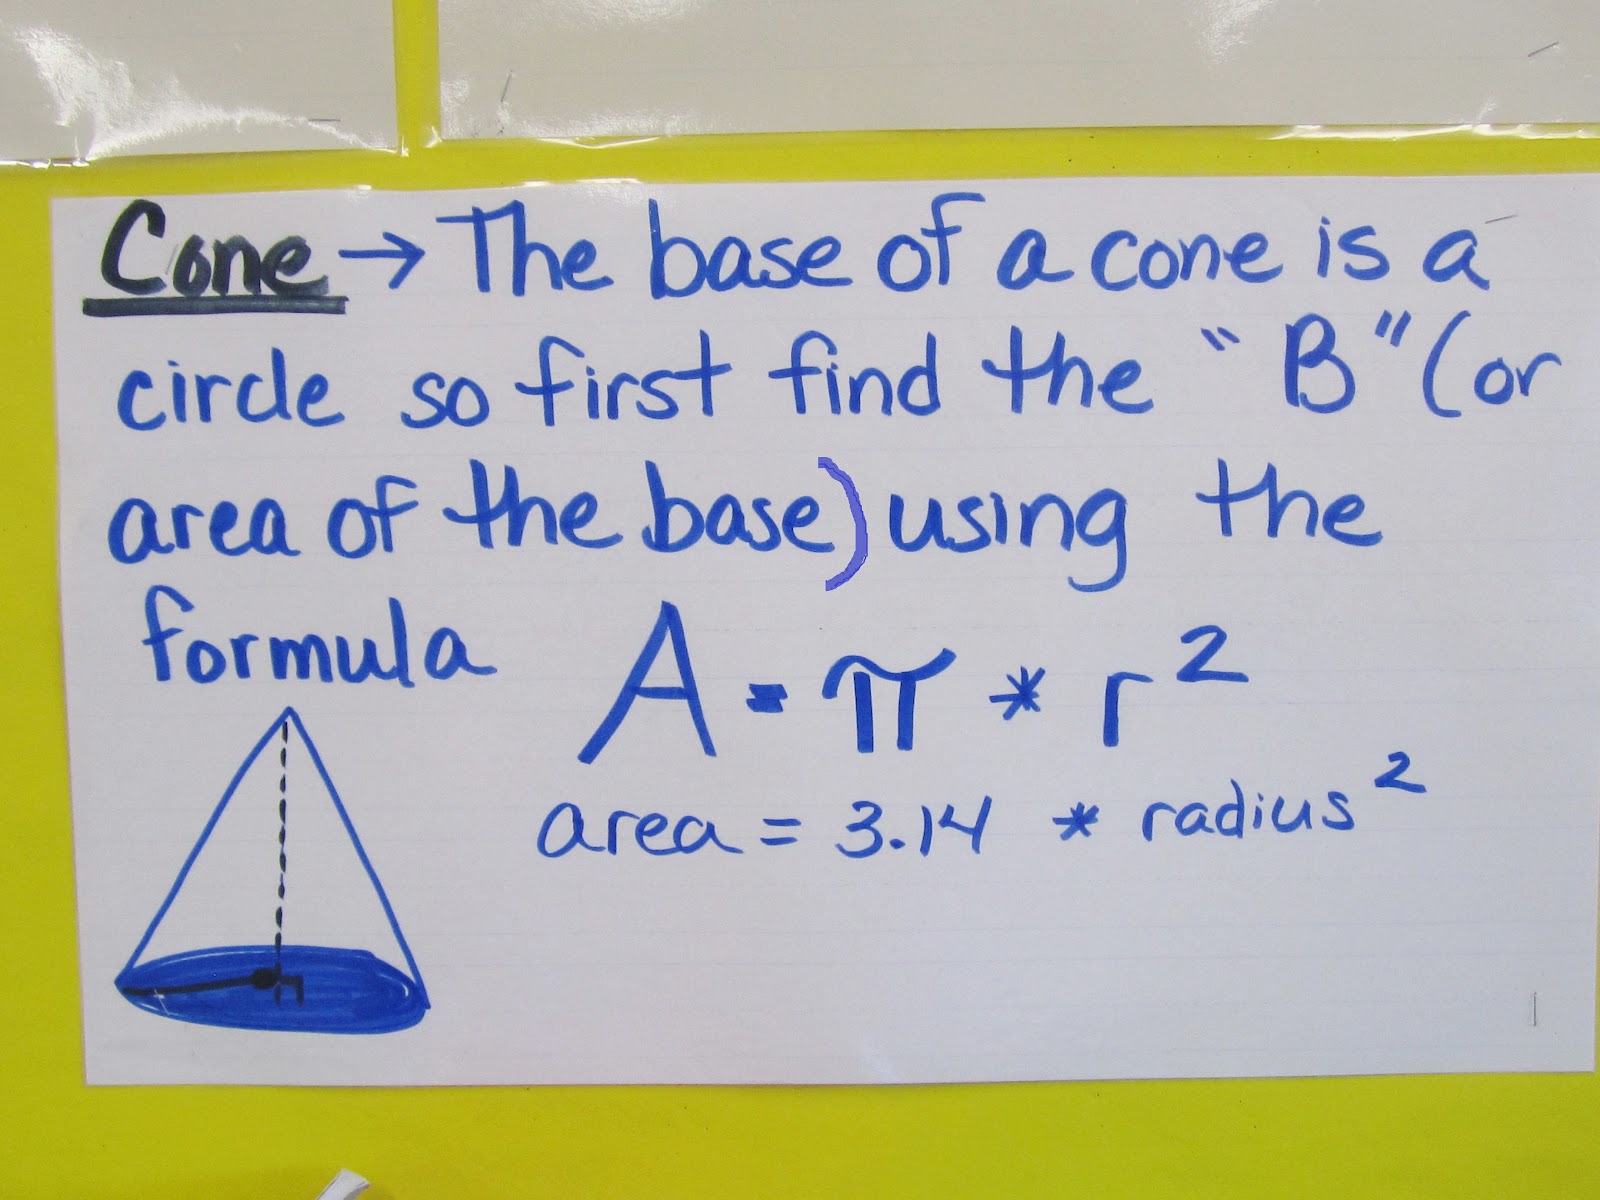 Cone → The base of a cone is a
circle so first find the "B" (or
area of the base) using the
formula A = π * r²
area = 3.14 * radius²